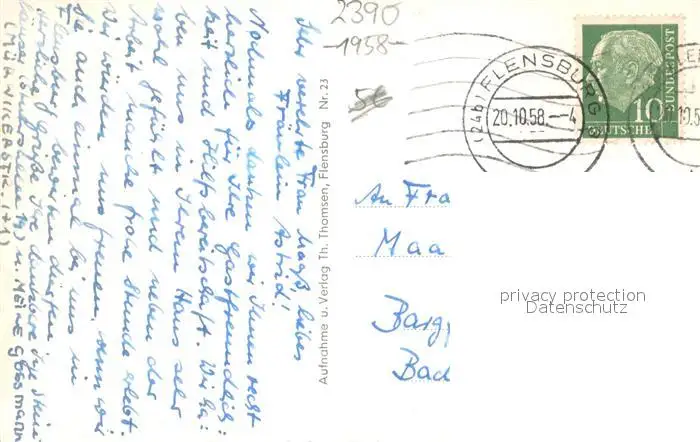 Sehr verehrte Frau Maaß, liebes
Fräulein Astrid!
Nochmals danken wir Ihnen recht
herzlich für Ihre Gastfreundlich-
keit und Hilfsbereitschaft. Wir ha-
ben uns in Ihrem Haus sehr
wohl gefühlt und neben der
Arbeit manche frohe Stunde erlebt.
Wir würden uns freuen, wenn wir
Sie auch einmal bei uns in
Flensburg begrüßen dürfen
Herzliche Grüße Ihre dankbare
häuser u. HEINE Gossmann
(MÜRWIKERSTR. 171)
Aufnahme u. Verlag Th. Thomsen, Flensburg Nr. 23
2390
-1958-
56
(24b) FLENSBURG
20.10.58.--4
DEUTSCHE
BUNDESPOST
10
An Fra
Maa
Barg,
Bad
privacy protection
Datenschutz